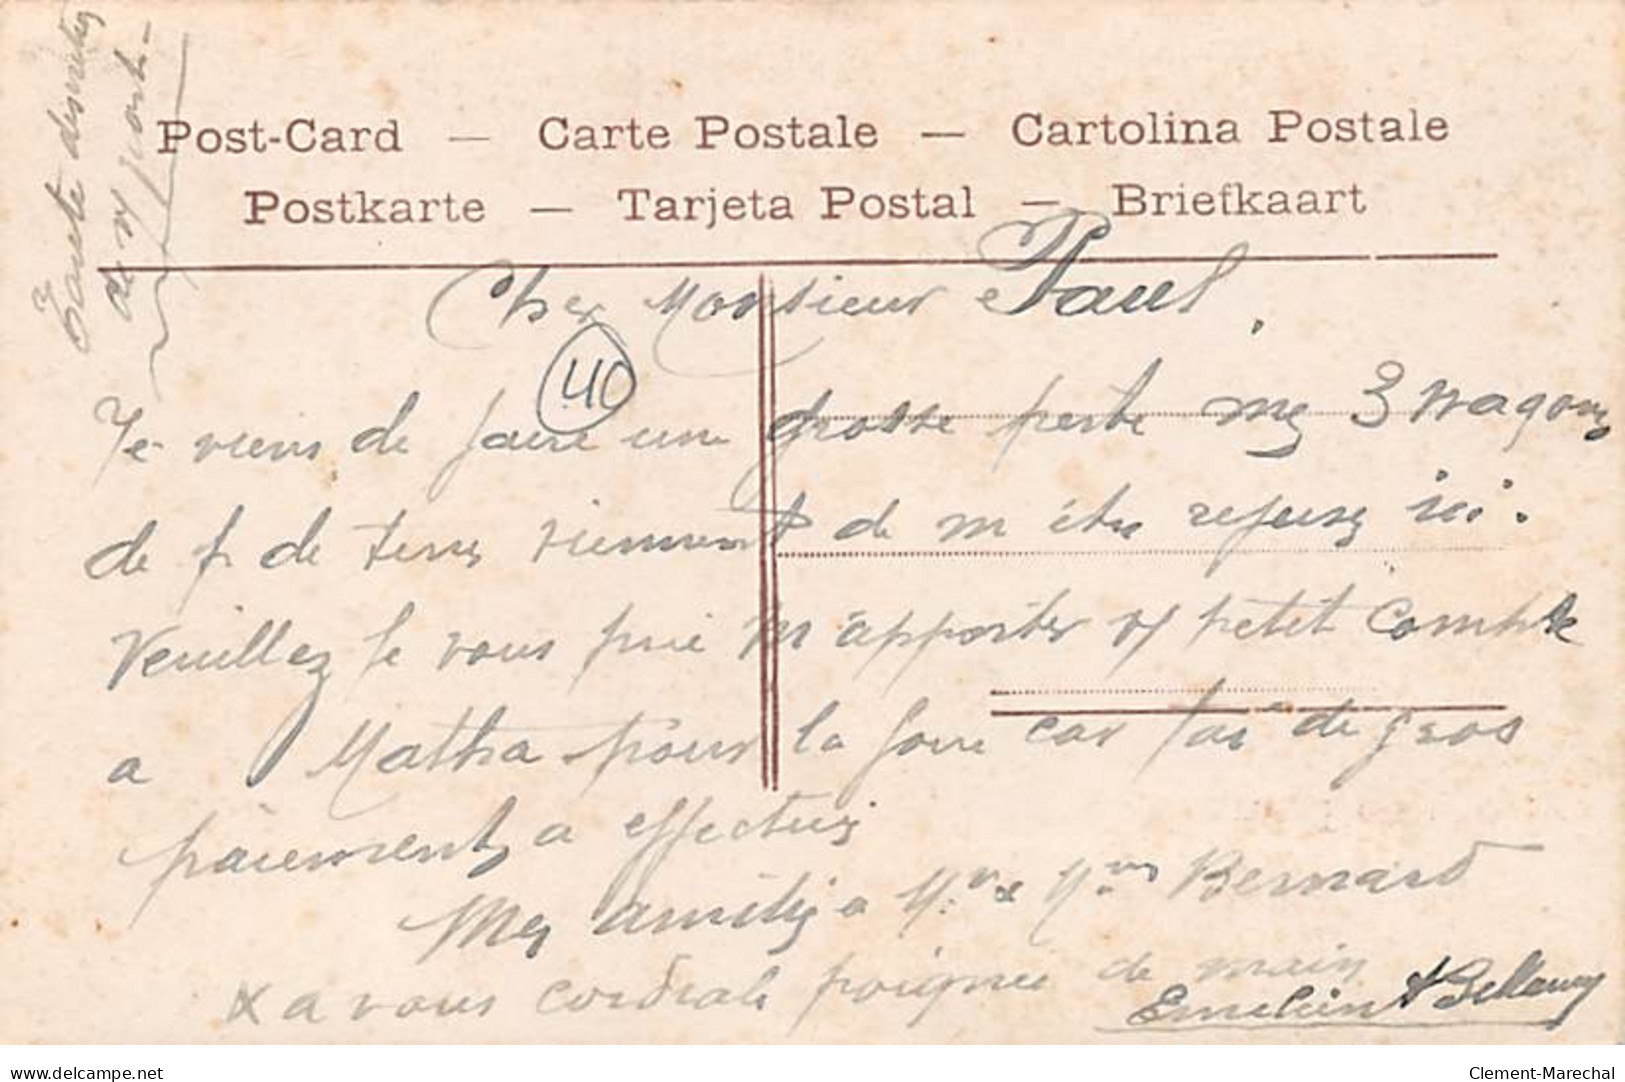 Post-Card — Carte Postale — Cartolina Postale
Postkarte — Tarjeta Postal — Briefkaart
Cher Monsieur Paul,
40
Je viens de faire une grosse perte mes 3 wagons
de p. de terres viennent de m'être refusés ici.
Veuillez je vous prie m'apporter v/ petit compte
a Matha pour la foire car j'ai de gros
paiements a effectués
Mes amitiés a Mr & Mme Bernard
& a vous cordiale poignée de main
Toute
de v/ part.
www.delcampe.net
Clement-Marechal